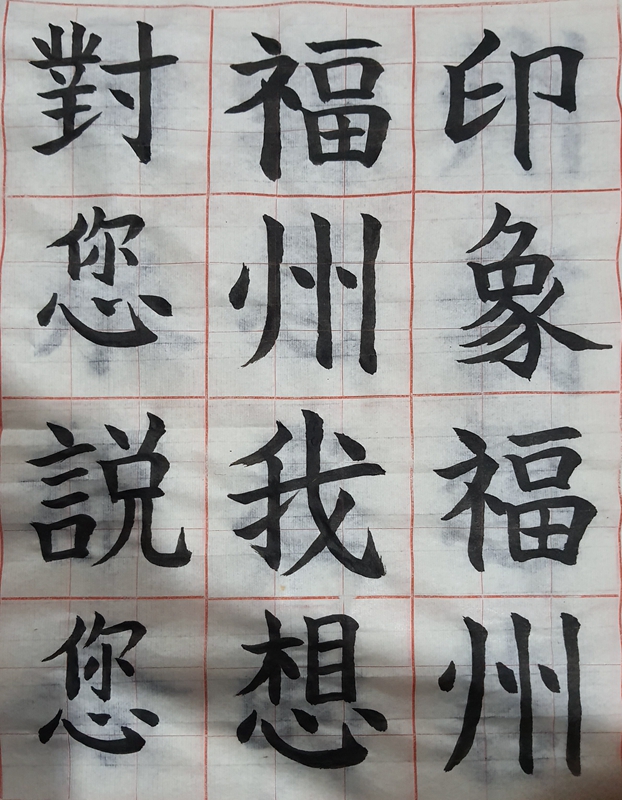 印象福州
福州我想
對您説您